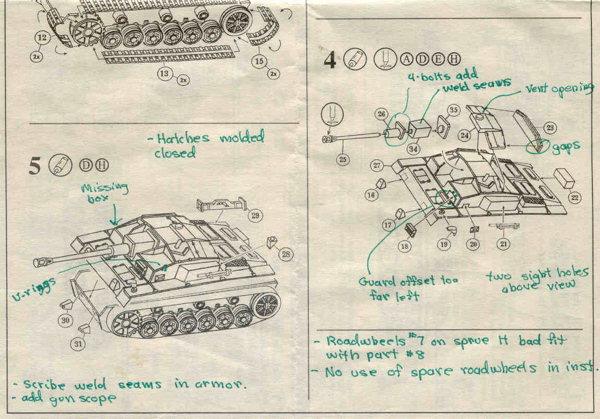 12
2x
13
2x
15
2x
- Hatches molded
closed
5 D H
Missing
box
29
28
U-rings
30
31
- Scribe weld seams in armor.
- add gun scope
4 A D E H
4-bolts add
weld seams
vent opening
26
35
23
24
25
34
gaps
27
16
22
17
18
19
20
21
Guard offset too
far left
two sight holes
above view
- Roadwheels #7 on sprue H bad fit
with part #8
- No use of spare roadwheels in inst.